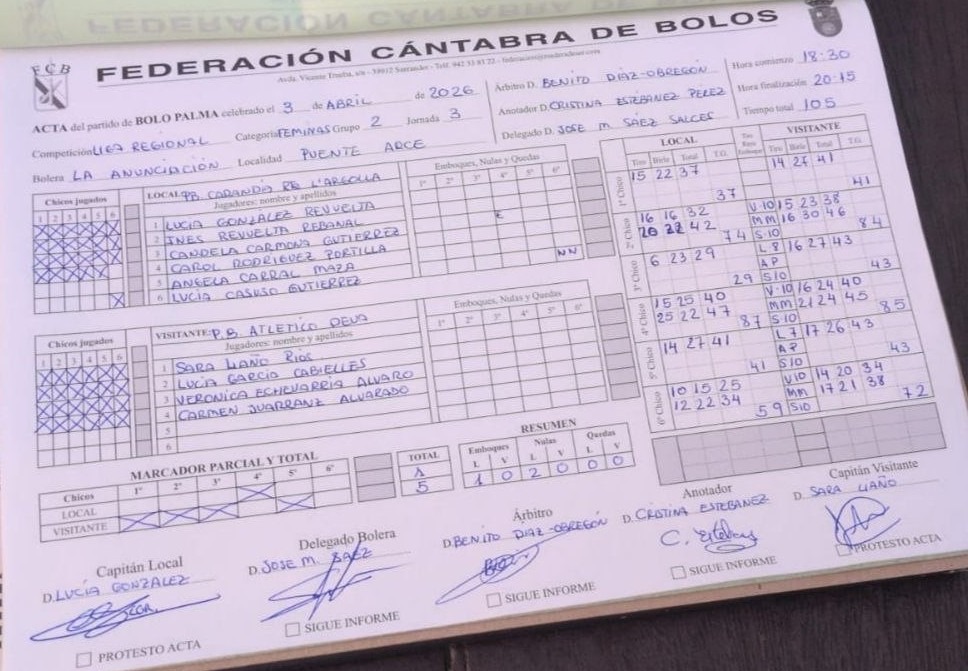 FEDERACIÓN CÁNTABRA DE BOLOS
FCB
Avda. Vicente Trueba, s/n - 39012 Santander - Telf. 942 33 83 22
ACTA del partido de BOLO PALMA celebrado el 3 de ABRIL de 2026
Competición LIGA REGIONAL Categoría FEMINAS Grupo 2 Jornada 3
Bolera LA ANUNCIACIÓN Localidad PUENTE ARCE
Árbitro D. BENITO DÍAZ-OBREGÓN
Anotador D. CRISTINA ESTÉBANEZ PÉREZ
Delegado D. JOSE M. SÁEZ SALCES
Hora comienzo 18:30
Hora finalización 20:15
Tiempo total 105
Chicos jugados
1 2 3 4 5 6
LOCAL: P.B. CARANDÍA L'ARGOLLA
Jugadores: nombre y apellidos
Emboques, Nulas y Quedas
1º 2º 3º 4º 5º 6º
1 LUCÍA GONZÁLEZ REVUELTA
2 INES REVUELTA REBANAL E
3 CANDELA CARMONA GUTIERREZ
4 CAROL RODRIGUEZ PORTILLA NN
5 ANGELA CARRAL MAZA
6 LUCÍA CASUSO GUTIERREZ
Chicos jugados
1 2 3 4 5 6
VISITANTE: P.B. ATLETICO DEVA
Jugadores: nombre y apellidos
Emboques, Nulas y Quedas
1º 2º 3º 4º 5º 6º
1 SARA LIAÑO RIOS
2 LUCÍA GARCÍA CABIELLES
3 VERONICA ECHEVARRÍA ALVARO
4 CARMEN JUARRANZ ALVARADO
5
6
LOCAL VISITANTE
Tiro Birle Total T.G. Tiro Birle Total T.G.
1º Chico 15 22 37 14 27 41
37 41
2º Chico 16 16 32 V-10 15 23 38
20 22 42 MM 16 30 46
74 S10 84
3º Chico 6 23 29 L 8 16 27 43
AP
29 S10 43
4º Chico 15 25 40 V-10 16 24 40
25 22 47 MM 21 24 45
87 S10 85
5º Chico 14 27 41 L 7 17 26 43
AP
41 S10 43
6º Chico 10 15 25 V10 14 20 34
12 22 34 MM 17 21 38
59 S10 72
MARCADOR PARCIAL Y TOTAL
Chicos 1º 2º 3º 4º 5º 6º TOTAL
LOCAL 1
VISITANTE 5
RESUMEN
Emboques Nulas Quedas
L V L V L V
1 0 2 0 0 0
Capitán Local
D. LUCÍA GONZALEZ
PROTESTO ACTA
Delegado Bolera
D. JOSE M. SÁEZ
SIGUE INFORME
Árbitro
D. BENITO DIAZ-OBREGÓN
SIGUE INFORME
Anotador
D. CRISTINA ESTEBANEZ
SIGUE INFORME
Capitán Visitante
D. SARA LIAÑO
PROTESTO ACTA